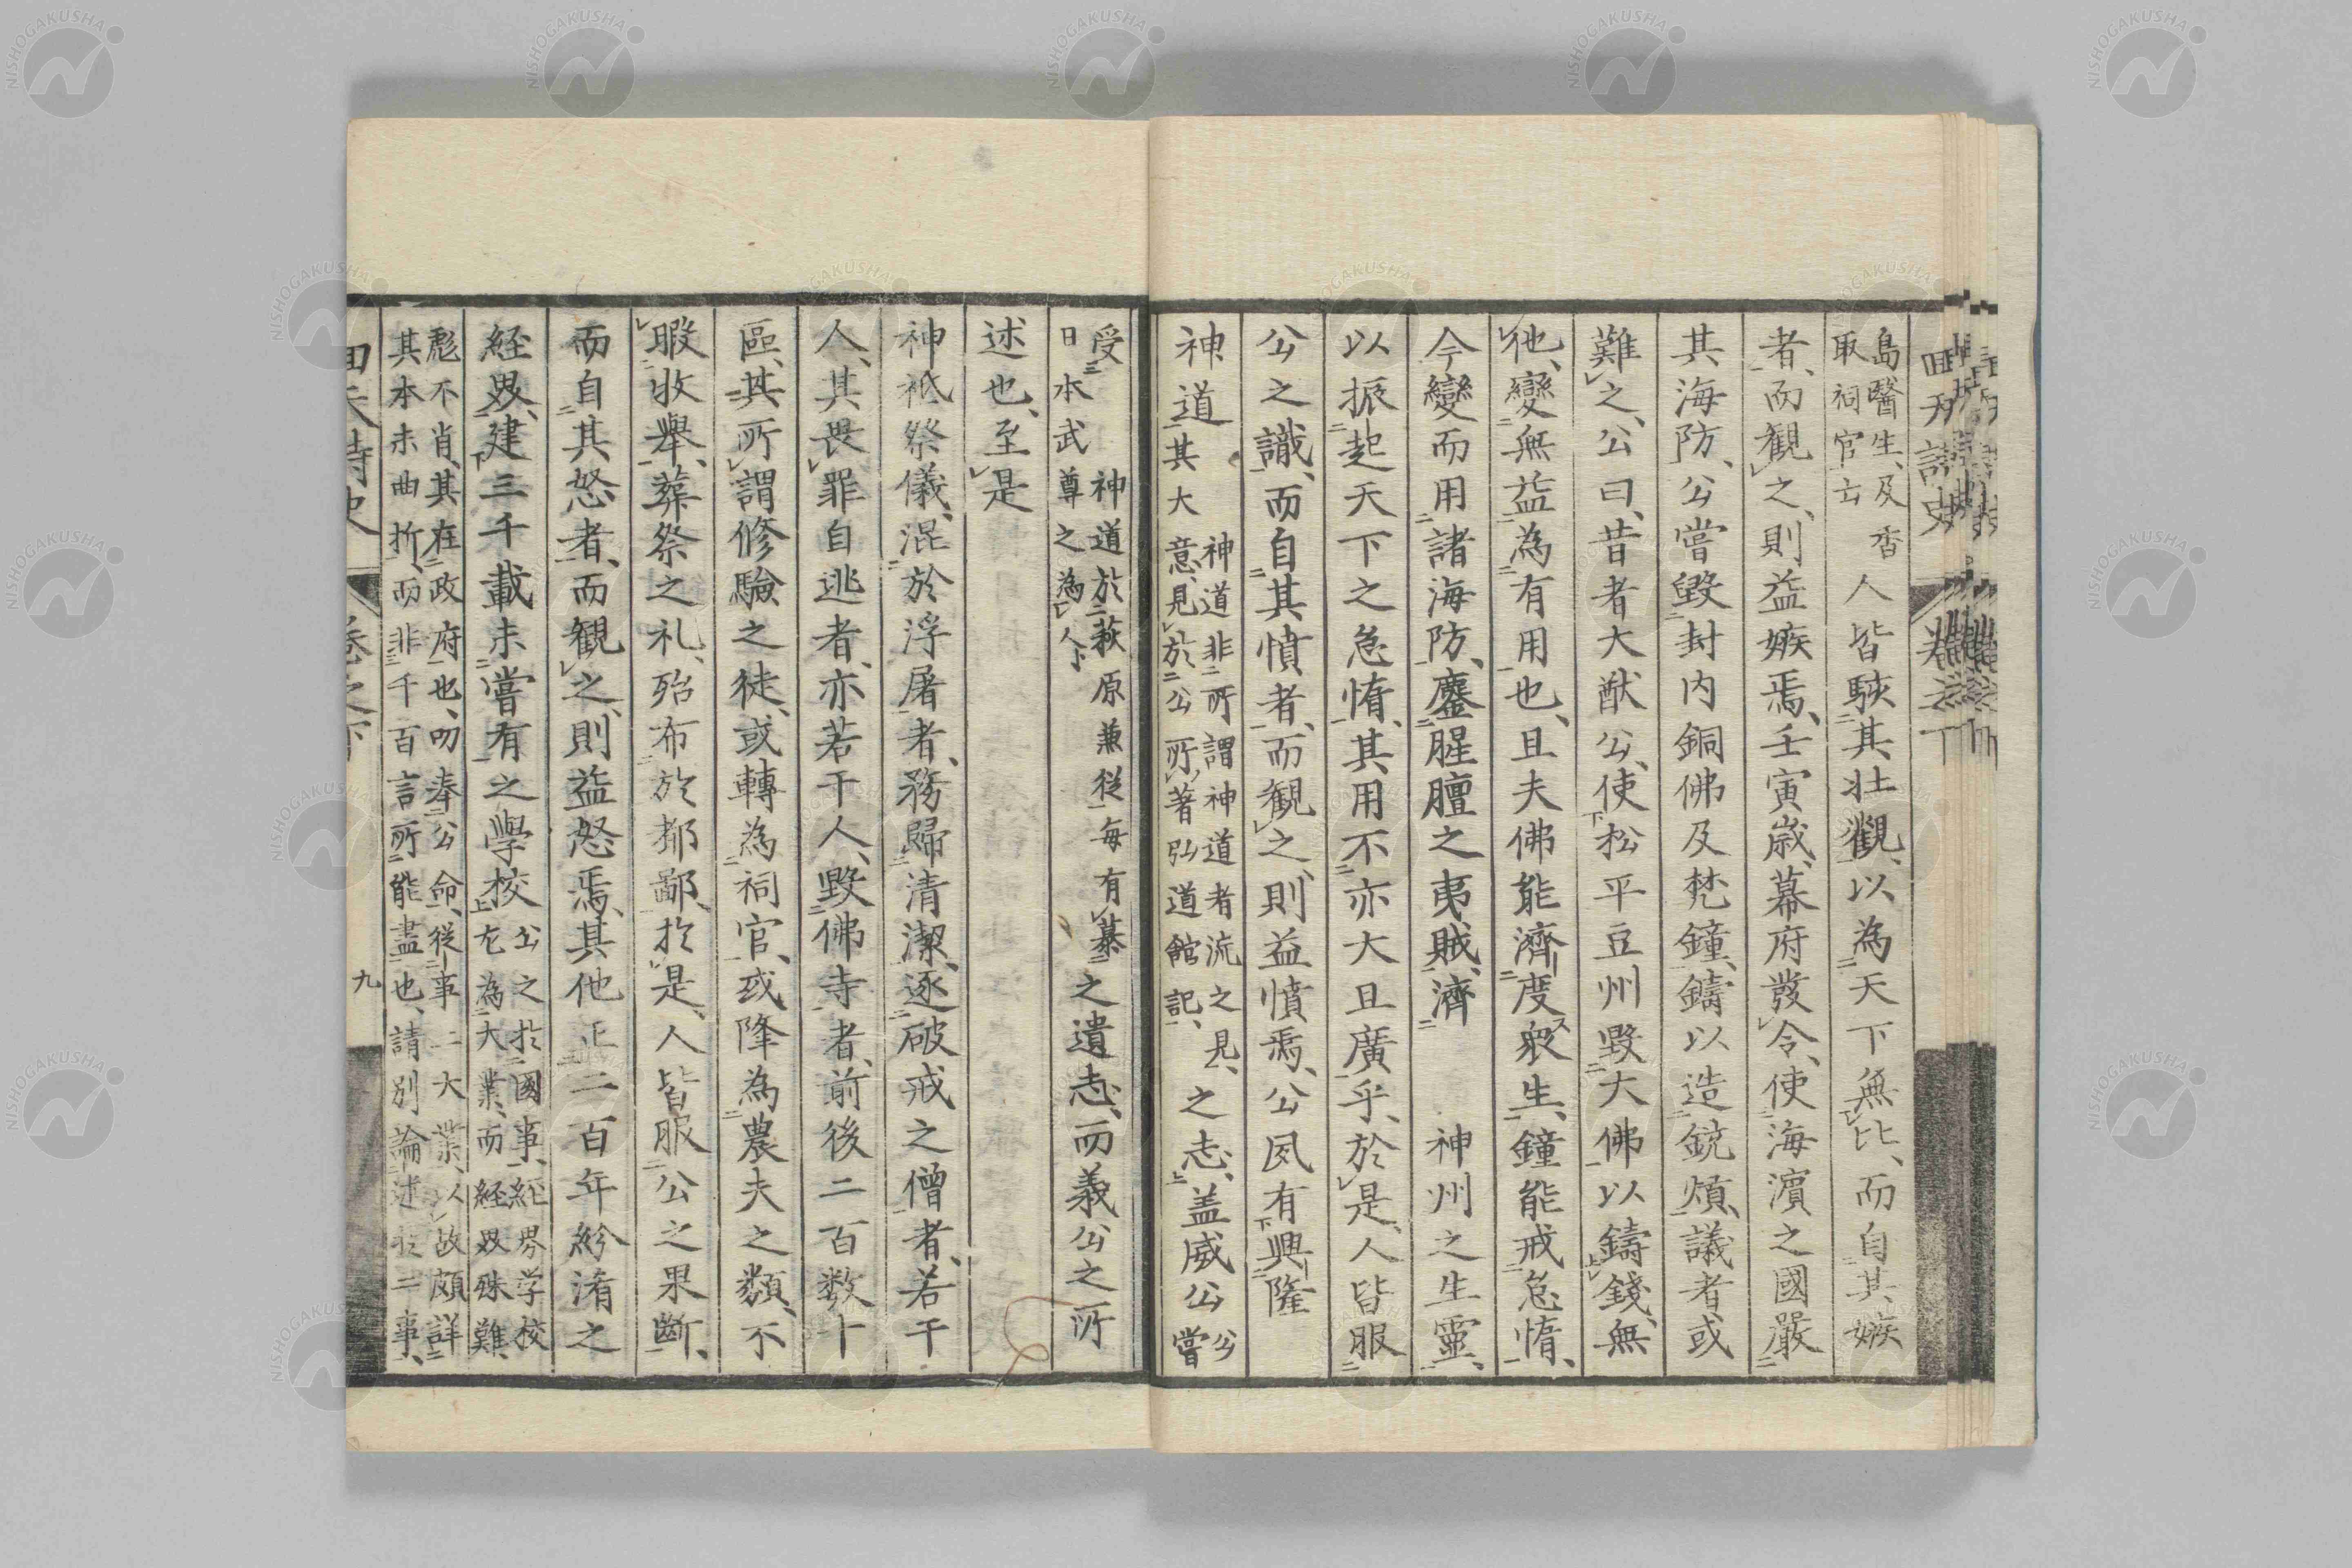 島醫生、及香
取祠官云
人皆駭其壯觀、以為天下無比、而自其嫉
者、而觀之、則益嫉焉、壬寅歲、幕府發令、使海濱之國嚴
其海防、公嘗毀封內銅佛及梵鐘、鑄以造銃熕、議者或
難之、公曰、昔者大猷公、使松平豆州毀大佛以鑄錢、無
他、變無益為有用也、且夫佛能濟度衆生、鐘能戒怠惰、
今變而用諸海防、鏖腥膻之夷賊、濟 神州之生靈、
以振起天下之怠惰、其用不亦大且廣乎、於是、人皆服
公之識、而自其憤者、而觀之、則益憤焉、公夙有興隆
神道
其大
神道非所謂神道者流之見、
意、見於公所著弘道館記、
之志、蓋威公
公
嘗
受 神道於萩原兼從每有慕
日本武尊之為人
之遺志、而義公之所
述也、至是
神祇祭儀、混於浮屠者、務歸清潔、逐破戒之僧者、若干
人、其畏罪自逃者、亦若干人、毀佛寺者、前後二百数十
區、其所謂修驗之徒、或轉為祠官、或降為農夫之類、不
暇收舉、葬祭之礼、殆布於都鄙、於是、人皆服公之果斷、
而自其怒者、而觀之、則益怒焉、其他正二百年紛淆之
経界、建三千載未嘗有之學校
公之於國事、経界学校
尤為大業、而経界殊難、
彪不肖、其在政府也、叨奉公命、從事二大業、以故頗詳
其本末曲折、而非千百言所能盡也、請別論述於二事、
回天詩史 卷之下 九